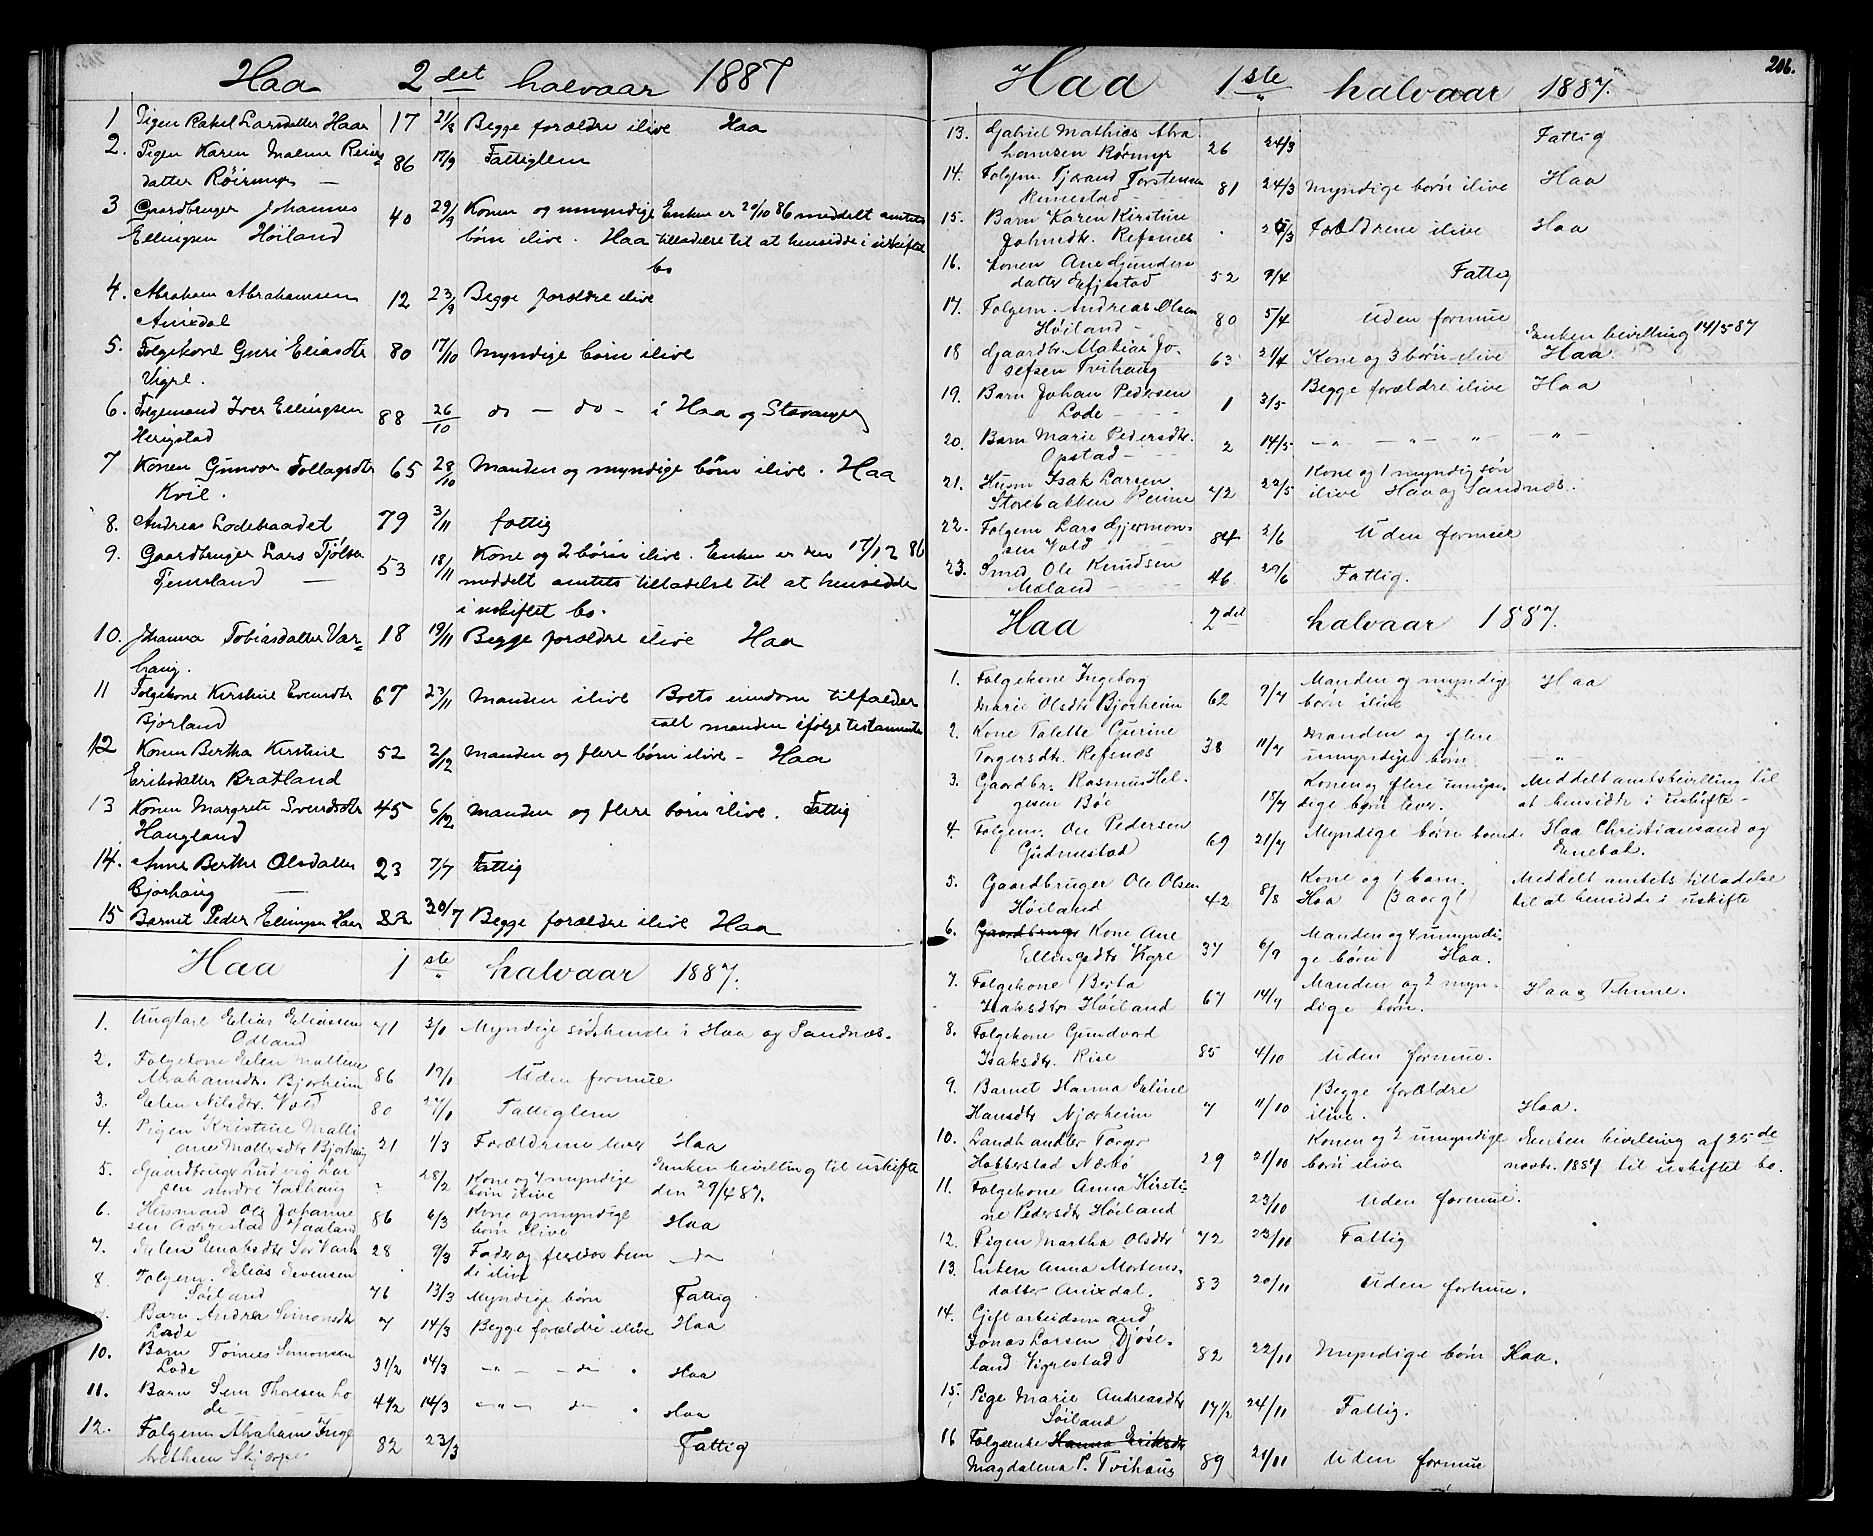 Haa 2det halvaar 1887
1 Pigen Rakel Larsdatter Haar 17 21/8 Begge forældre ilive Haa
2. Pigen Karen Malene Reiers=
datter Röirmyr — 86 17/9 Fattiglem
3 Gaardbruger Johannes
Ellingsen Höiland 40 29/9 Konen og umyndige Enken er 20/10 86 meddelt amtets
börn ilive. Haa tilladelse til at hensidde i uskiftet
bo
4. Abraham Abrahamsen
Anixdal 12 23/9 Begge forældre ilive
5. Folgekone Guri Eliasdtr
Vigre. 80 17/10 Myndige börn ilive
6. Folgemand Iver Ellingsen
Herigstad 88 26/10 do — do - i Haa og Stavanger
7 Konen Gunvor Tollagsdtr
Kvil. 65 28/10 Manden og myndige börn ilive. Haa
8. Andreas Lodebraadet 79 3/11 fattig
9. Gaardbruger Lars Tjölsen
— 53 18/11 Kone og 2 börn ilive. Enken er den 17/12 86
meddelt amtets tilladelse til at hensidde
i uskiftet bo.
10. Johanna Tobiasdatter Var=
haug. 18 19/11 Begge forældre ilive Haa
11 Folgekone Kirstine Evensdtr
Bjorland 67 23/11 Manden ilive Boets eiendom tilfalder
manden ifolge testamente
12 Konen Bertha Kirstine
Eriksdatter Bratland 52 2/12 Manden og flere börn ilive - Haa
13 Konen Margrete Svendsdtr
Haugland 45 6/12 Manden og flere börn ilive. Fattig
14. Anne Berthe Olsdatter
Bjorhaug — 23 7/7 Fattig
15 Barnet Peder Elingsen Haar 30/7 Begge forældre ilive Haa
Haa 1ste halvaar 1887.
1. Ungkarl Elias Eliassen
Odland 41 3/1 Myndige södskende i Haa og Sandnæs.
2. Folgekone Elen Malene
Abrahamsdtr. Bjorheim 86 19/1 Uden formue
3. Elen Nilsdtr. Vold 80 27/1 Fattiglem
4. Pigen Kristine Malli
Bjorhaug 21 1/3 Forældrene lever Haa
5. Gaardbruger Ludvig Lar
sen nedre Varhaug 28/2 Kone og 4 myndige
börn ilive Enken bevilling til uskifte
den 29/4 87.
6. Husmand Ole Johanne
sen Aarrestad Vaaland 86 6/3 Kone og myndige
börn ilive Haa
7. Elen Enoksdtr Varh 28 9/3 Fader og
ilive do
8. Folgem. Elias Evensen
Söiland 76 13/3 Myndige börn Fattig
Barn Andrea Simonsdtr
Lode 7 14/3 Begge forældre ilive Haa
10. Barn Tönnes Simonsen
Lode 3 1/2 14/3 -"- - do " Haa
11. Barn Sem Thoresen Lo
de 4 1/2 14/3 -"-"- do " Haa
12. Folgem Abraham Inge
brethsen Skjorpe 82 23/3 Fattig
206.
Haa 1ste halvaar 1887.
13. Gabriel Mathias Abra
hamsen Rörmyr 26 24/3 Fattig
14. Folgem. Tjerand Torstensen
Rimestad 81 24/3 Myndige börn ilive Haa
15. Barn Karen Kirstine
Johnsdtr. Refsnes " 26/3 Forældrene ilive Haa
16. Konen Ane Gunders
datter 52 9/4 Fattig
17. Folgem. Andreas Olsen
Höiland - 80 5/4 Uden formue
18 Gaardbr. Matias Jo-
sefsen Tvihaug 63 21/4 Kone og 3 börn ilive Enken bevilling 14/5 87
Haa.
19. Barn Johan Pedersen
Lode - 1 3/5 Begge forældre ilive Haa
20. Barn Marie Pedersdtr.
Opstad - 2 14/5 -"- -"- "- "-
21. Husm Isak Larsen
Storebakken 42 22/5 Kone og 1 myndig sön
ilive Haa og Sandnæs.
22. Folgem Lars Gjermon-
sen Vold 84 2/6 Uden formue
23. Smed Ole Knudsen
Mæland 46 29/6 Fattig.
Haa 2det halvaar 1887.
1. Folgekone Ingeborg
Marie Olsdtr Bjorheim 62 9/7 Manden og myndige
börn ilive Haa
2. Kone Talette Gurine
Torgersdtr. Refsnæs 38 11/7 Manden og flere
umyndige börn. — " —
3. Gaardbr. Rasmus Hel-
gesen Böe 15/7 Konen og flere umyn-
dige börn lever. Meddelt amtsbevilling til
at hensidde i uskifte -
4. Folgem. Ole Pedersen
Gudmestad 69 21/7 Myndige börn boende Haa Christiansand og
Enebak.
5. Gaardbruger Ole Olsen
Höiland 42 8/8 Kone og 1 barn.
Haa (3 aargl) Meddelt amtets tilladelse
til at hensidde i uskifte
6. Gaardbrugr Kone Ane
Ellingsdtr Vigre 37 6/9 Manden og 4 umyndi-
ge börn Haa.
7. Folgekone Berta
Isaksdtr Höiland 67 14/7 Manden og 2 myn-
dige börn. Haa & Thime.
8. Folgekone Gundvor
Isaksdtr. Rise 85 4/10 Uden formue.
9. Barnet Hanna Eline
Hansdtr Njærheim 7 11/10 Begge forældre
ilive. Haa.
10. Landhandler Torger
Hobberstad Nærbö 29 21/10 Konen og 2 umyndige
börn ilive Enken bevilling af 25de
novbr. 1887 til uskiftet bo.
11. Folgekone Anna Kirsti-
ne Pedersdtr Höiland 23/10 Uden formue.
12. Pigen Martha Olsdtr 72 23/10 Fattig
13. Enken Anna Mortens-
datter Anixdal. 83 20/11 Uden formue.
14. Gift arbeidsmand
Jonas Larsen Djöse-
land Vigrestad 82 22/11 Myndige börn Haa.
15. Pige Marie Andreasdtr
Söiland 17 1/2 24/11 Fattig.
16 Folgeenke Hanna Eriksdtr
Magdalena P. Tvihaug 89 21/11 Uden formue